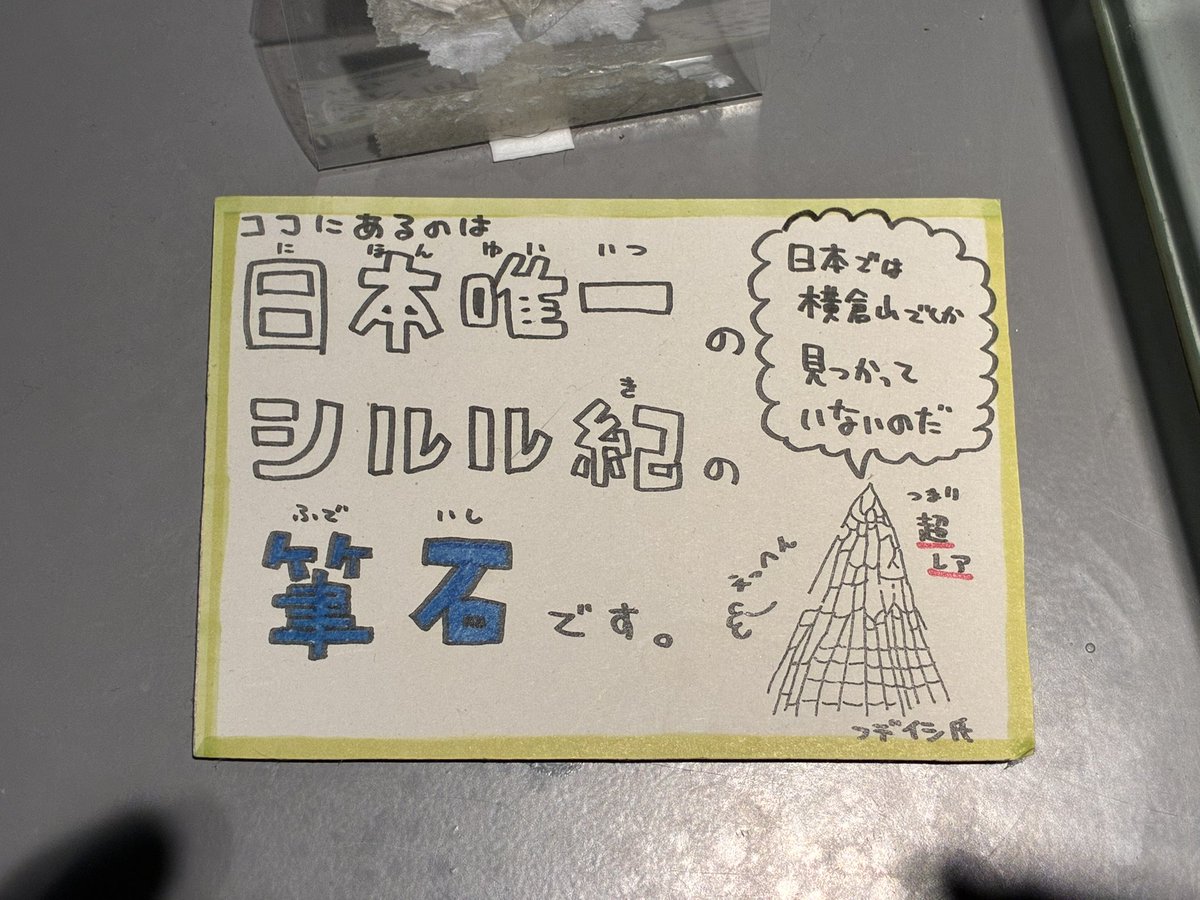 ココにあるのは
にほんゆいいつ
日本唯一の
き
シルル紀の
ふでいし
筆石です。
日本では
横倉山でしか
見つかって
いないのだ
つまり
超
レア
えっへん
フデイシ氏